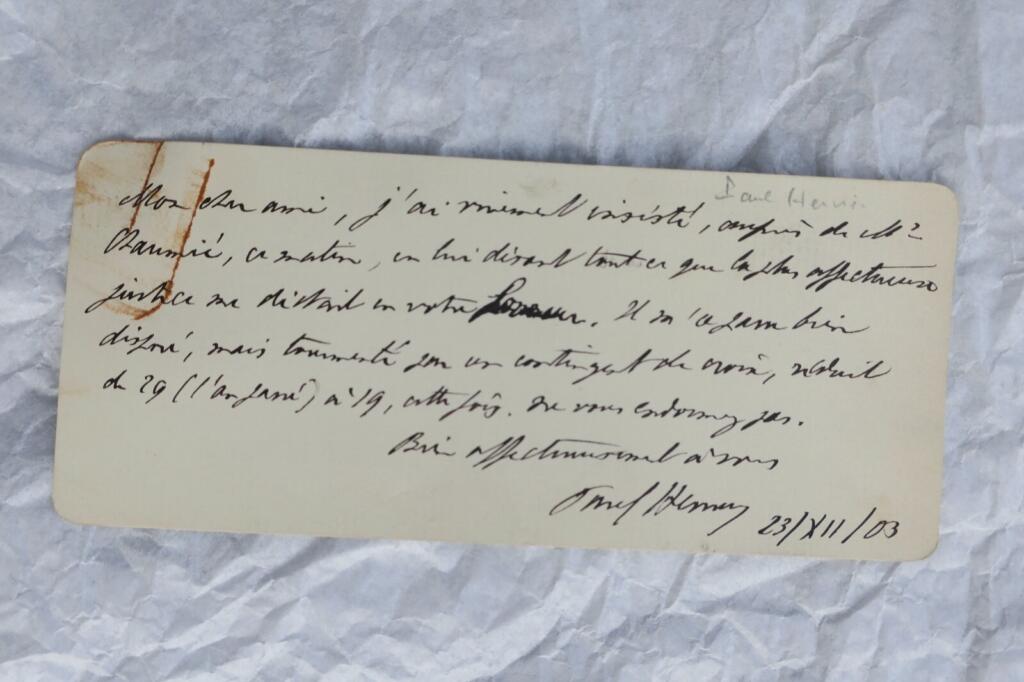 Paul Hervieu
Mon cher ami, j'ai vivement insisté, auprès de Mr
Chaumié, ce matin, en lui disant tout ce que la plus affectueuse
justice me dictait en votre faveur. Il m'a paru bien
disposé, mais tourmenté par un contingent de croix, réduit
de 29 (l'an passé) à 19, cette fois. Ne vous endormez pas.
Bien affectueusement à vous
Paul Hervieu
23/XII/03